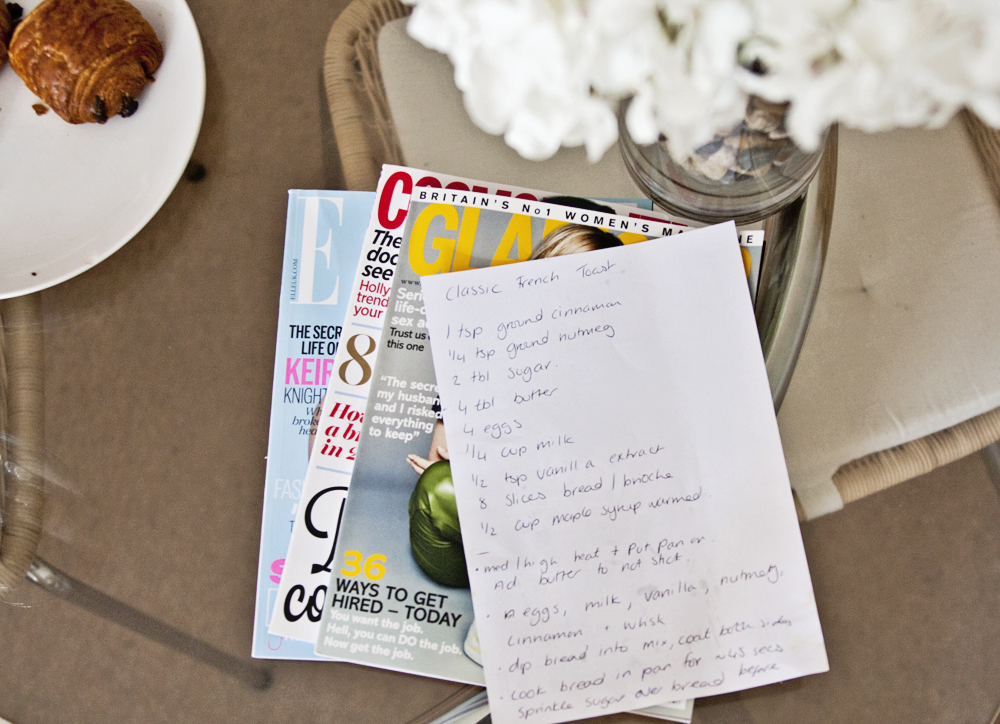 E
ELLEUK.COM
THE SECR
LIFE OF
KEIR
KNIGHT
COSMO
The
doc
see
Holly
trend
your
8
How
a bi
in 2
co
BRITAIN'S No1 WOMEN'S MA ZINE
GLA
www.
Seri
life-c
sex a
Trust us
this one
"The secre
my husban
and I risked
everything
to keep"
36
WAYS TO GET
HIRED – TODAY
You want the job.
Hell, you can DO the job.
Now get the job.
Classic French Toast
1 tsp ground cinnamon
1/4 tsp ground nutmeg
2 tbl sugar.
4 tbl butter
4 eggs
1/4 cup milk
1/2 tsp vanilla extract
8 slices bread / brioche
1/2 cup maple syrup warmed.
–
• med / high heat + put pan on
Ad butter to not stick.
• eggs, milk, vanilla, nutmeg,
cinnamon + whisk
• dip bread into mix, coat both sides
• cook bread in pan for ~45 secs
sprinkle sugar over bread before